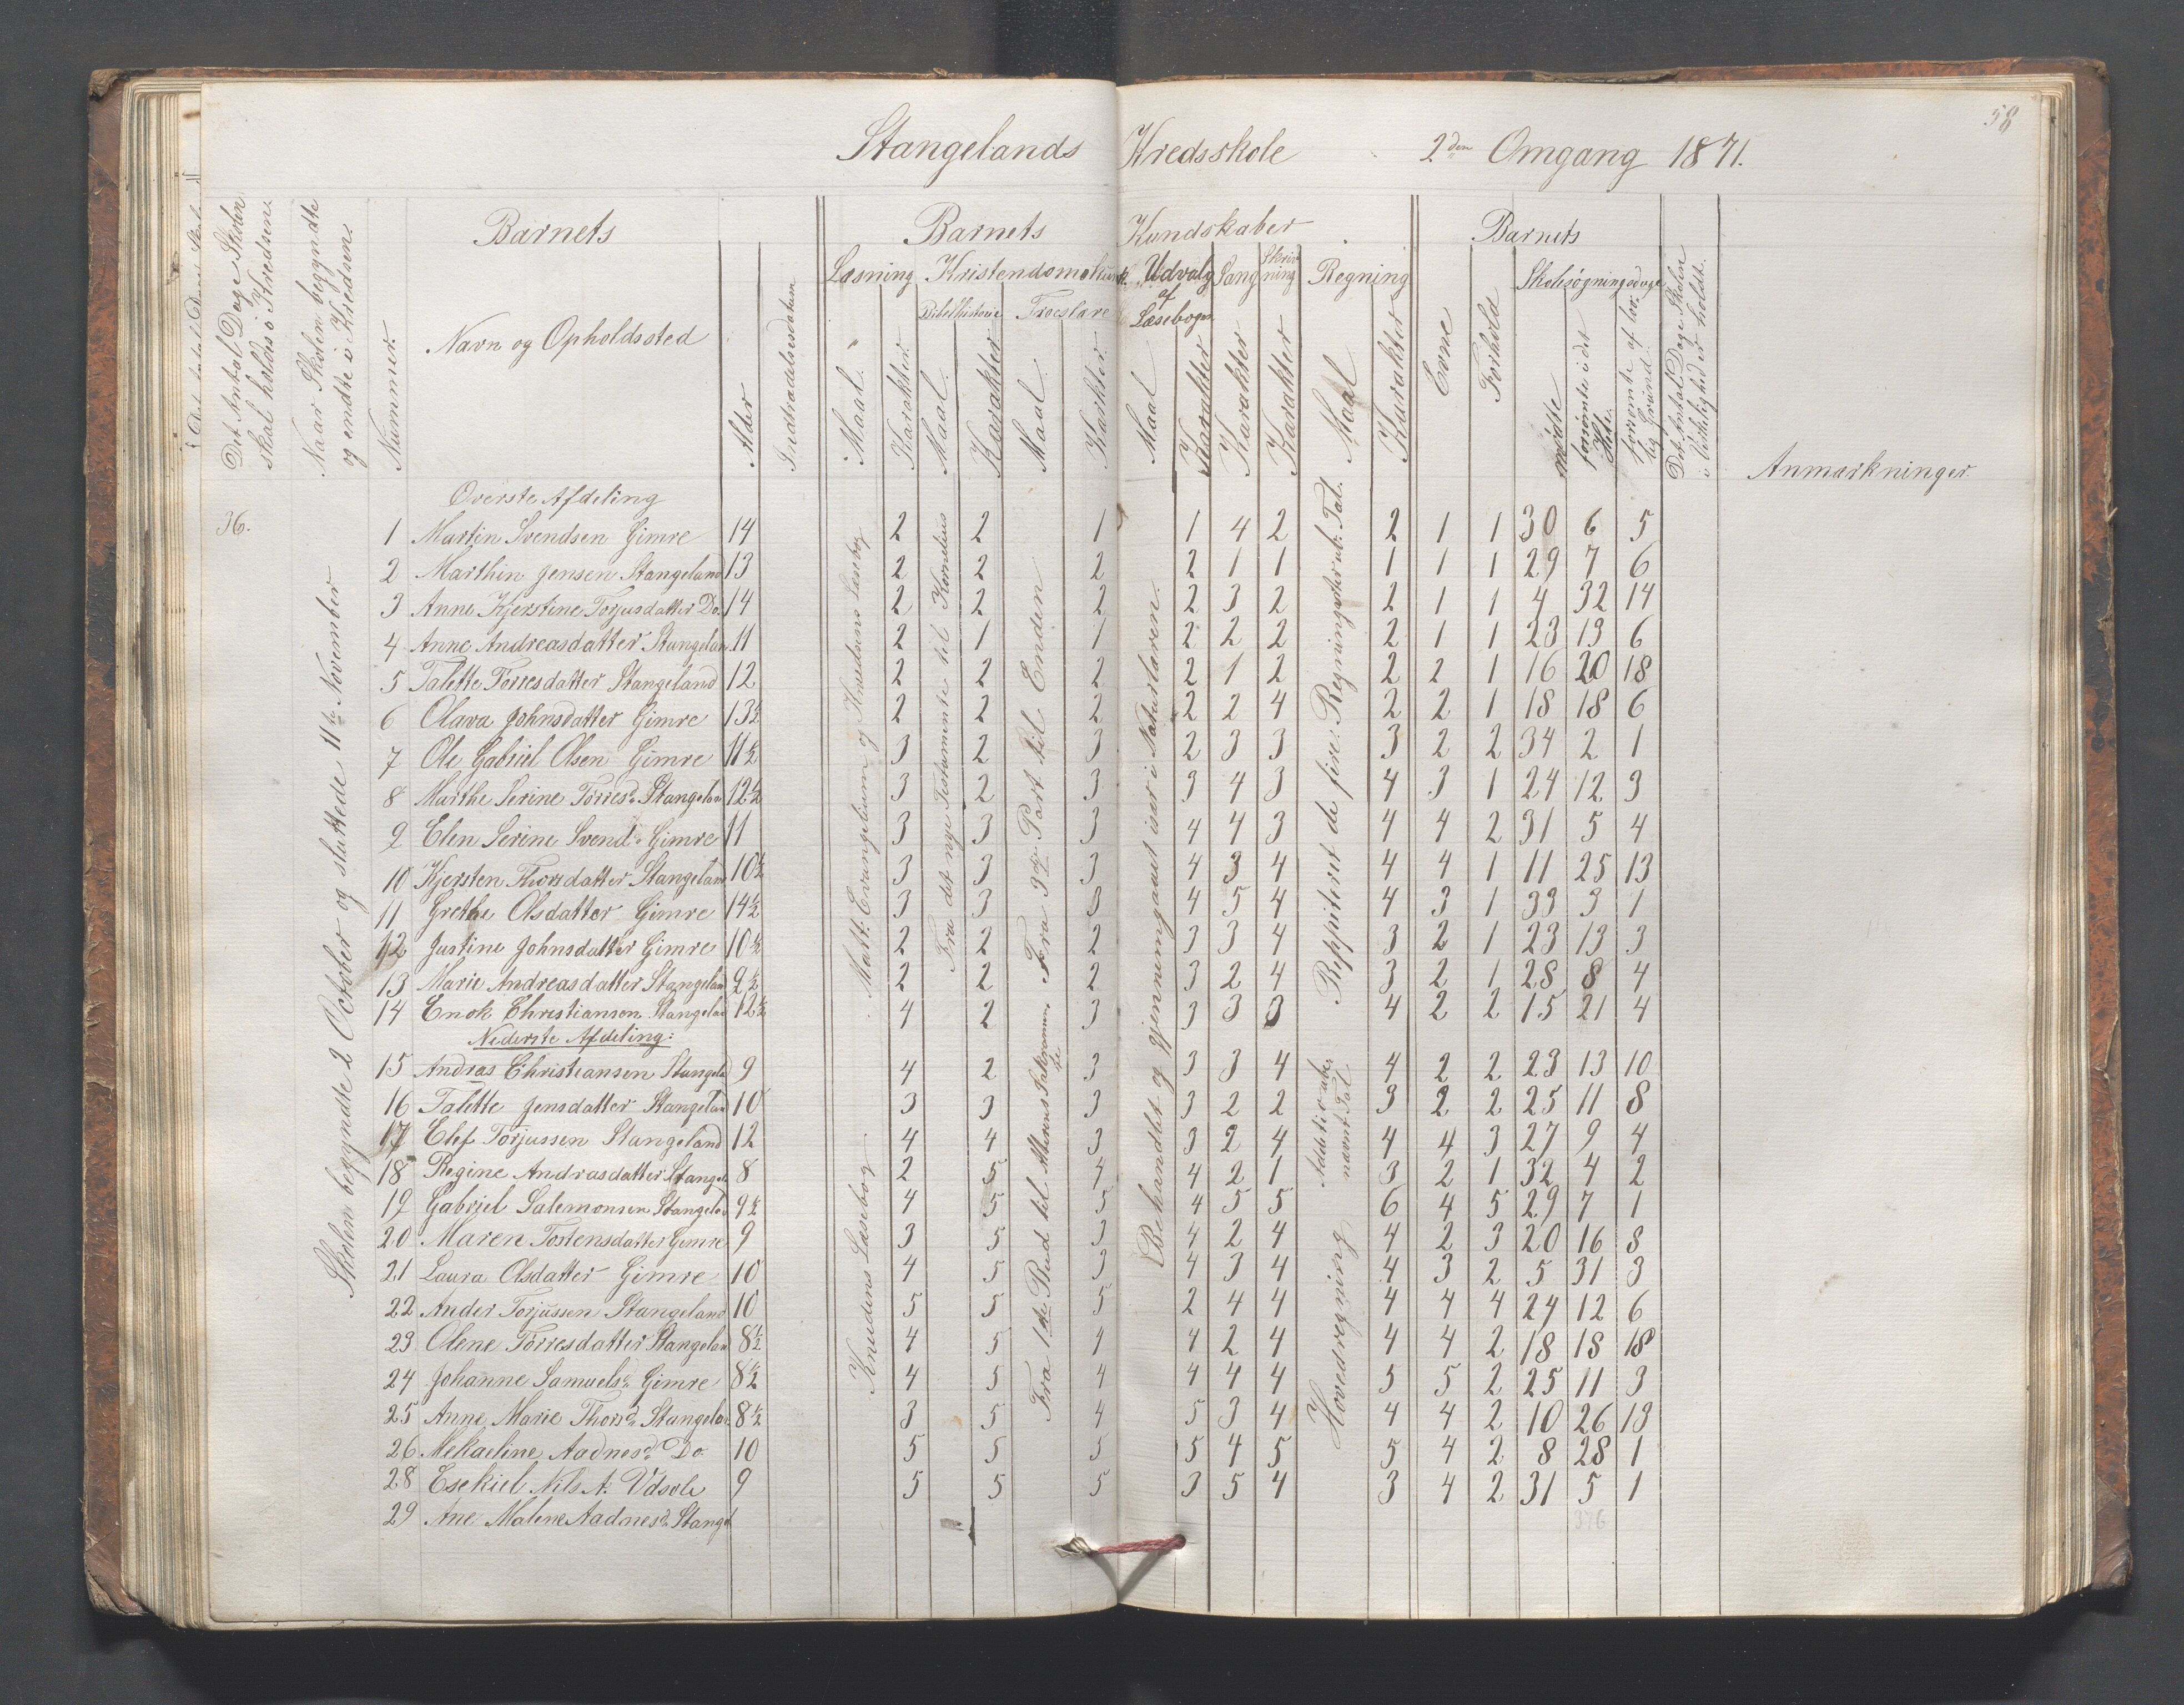 58
Stangelands Kredsskole 2den Omgang 1871.
Det Antal Dage Skolen skal holdes i Kredsen.
Naar Skolen begyndte og endte i Kredsen.
Nummer.
Barnets
Navn og Opholdssted
Alder
Indtrædelsesdatum
Barnets Kundskaber
Læsning
Maal.
Karakter.
Kristendomskundsk.
Bibelhistorie
Maal.
Karakter
Troeslære
Maal.
Karkter.
Udvalg af Læsebogen
Maal
Karakter
Sang
Karakter
Skrivning
Karakter
Regning
Maal
Karakter
Barnets
Evne
Forhold
Skolesøgningsdage
mødte
forsømte i det Hele.
forsømte af lovlig Grund.
Det Antal Dage Skolen i Virkelighed er holdt.
Anmærkninger.
36.
Skolen begyndte 2 October og sluttede 11te November
Matt. Evangelium og Knudsens Læsebog
Fra det nye Testamente til Kornelius
Fra 3die Part til Enden
Knudsens Læsebog
Fra 1ste Bud til Alterens Sakramente
Behandlet og gjennemgaaet især i Naturlæren.
Reppiteret de fire Regningsarter ub. Tal.
Addetio ube nævnt Tal
Hovedregning
Øverste Afdeling
1 Martin Svendsen Gimre 14 2 2 1 1 4 2 2 1 1 30 6 5
2 Marthin Jensen Stangeland 13 2 2 2 2 1 1 1 1 1 29 7 6
3 Anne Kjerstine Torjusdatter Do. 14 2 2 2 2 3 2 2 1 1 4 32 14
4 Anne Andreasdatter Stangelan 11 2 1 1 2 2 2 2 1 1 23 13 6
5 Talette Torresdatter Stangeland 12 2 2 2 2 1 2 2 2 1 16 20 18
6 Olava Johnsdatter Gimre 13½ 2 2 2 2 2 4 2 2 1 18 18 6
7 Ole Gabriel Olsen Gimre 11½ 3 2 3 2 3 3 3 2 2 34 2 1
8 Marthe Serine Torresd. Stangelan 12½ 3 2 3 3 4 3 4 3 1 24 12 3
9 Elen Serine Svend. Gimre 11 3 3 3 4 4 3 4 4 2 31 5 4
10 Kjersten Thorsdatter Stangeland 10½ 3 3 3 4 3 4 4 4 1 11 25 13
11 Grethe Olsdatter Gimre 14½ 3 3 3 4 5 4 4 3 1 33 3 1
12 Justine Johnsdatter Gimre 10½ 2 2 2 3 3 4 3 2 1 23 13 3
13 Marie Andreasdatter Stangelan 9½ 2 2 2 3 2 4 3 2 1 28 8 4
14 Enok Christiansen Stangelan 12½ 4 2 3 3 3 3 4 2 2 15 21 4
Nederste Afdeling:
15 Andras Christiansen Stangela 9 4 2 3 3 3 4 4 2 2 23 13 10
16 Talette Jensdatter Stangelan 10 3 3 3 3 2 2 3 2 2 25 11 8
17 Elef Torjussen Stangeland 12 4 4 3 3 2 4 4 4 3 27 9 4
18 Regine Andrasdatter Stangel 8 2 5 4 4 2 1 3 2 1 32 4 2
19 Gabriel Salemonsen Stangelan 9½ 4 5 5 4 5 5 6 4 5 29 7 1
20 Maren Tostensdatter Gimre 9 3 5 3 4 2 4 4 2 3 20 16 8
21 Laura Olsdatter Gimre 10 4 5 3 4 3 4 4 3 2 5 31 3
22 Ander Torjussen Stangeland 10 5 5 5 2 4 4 4 4 4 24 12 6
23 Olene Torresdatter Stangelan 8½ 4 5 4 4 2 4 4 4 2 18 18 18
24 Johanne Samuelsd. Gimre 8½ 4 5 4 4 4 4 5 5 2 25 11 3
25 Anne Marie Thorsd. Stangelan 8½ 3 5 4 5 3 4 4 4 2 10 26 13
26 Mekaeline Aadnesd. Do. 10 5 5 5 5 4 5 5 4 2 8 28 1
28 Esekiel Nils A. Udsole 9 5 5 5 3 5 4 3 4 2 31 5 1
29 Ane Malene Aadnesd. Stangel